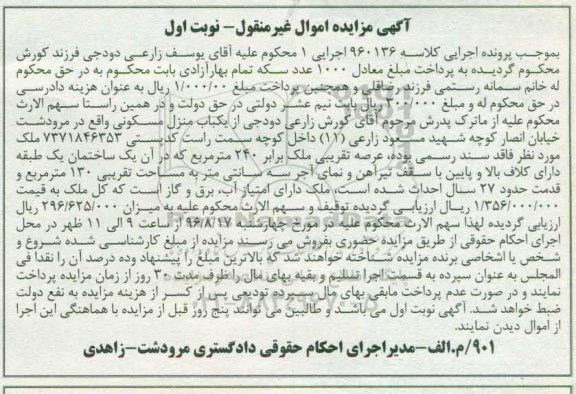 آگهی مزایده اموال غیرمنقول- نوبت اول
بموجب پرونده اجرایی کلاسه ۹۶۰۱۳۶ اجرایی ۱ محکوم علیه آقای یوسف زارعی دودجی فرزند کورش
محکوم گردیده به پرداخت مبلغ معادل ۱۰۰۰ عدد سکه تمام بهارآزادی بابت محکوم به در حق محکوم
له خانم سمانه رستمی فرزند رضاقلی و همچنین پرداخت مبلغ ۱/۰۰۰/۰۰ ریال به عنوان هزینه دادرسی
در حق محکوم له و مبلغ ریال بابت نیم عشر دولتی در حق دولت و در همین راستا سهم الارث
محکوم علیه از ماترک پدرش مرحوم آقای کورش زارعی دودجی از یکباب منزل مسکونی واقع در مرودشت
خیابان انصار کوچه شهید زارعی (۱۱) داخل کوچه سمت راست کدپستی ۷۳۷۱۸۴۶۳۵۳ ملک
مورد نظر فاقد سند رسمی بوده، عرصه تقریبی ملک برابر ۲۴۰ مترمربع که در آن یک ساختمان یک طبقه
دارای کلاف بالا و پایین با سقف تیرآهن و نمای آجر سه سانتی متر به مساحت تقریبی ۱۳۰ مترمربع و
قدمت حدود ۲۷ سال احداث شده است، ملک دارای امتیاز آب، برق و گاز است که کل ملک به قیمت
۱/۳۵۶/۰۰۰/۰۰۰ ریال ارزیابی گردیده توقیف و سهم الارث محکوم علیه به میزان ۲۹۶/۶۲۵/۰۰۰ ریال
ارزیابی گردیده لهذا سهم الارث محکوم علیه در مورخ چهارشنبه ۹۶/۸/۱۷ از ساعت ۹ الی ۱۱ ظهر در محل
اجرای احکام حقوقی از طریق مزایده حضوری بفروش می رسند مزایده از مبلغ کارشناسی شده شروع و
شخص یا اشخاصی برنده مزایده شناخته خواهند شد که بالاترین مبلغ را پیشنهاد وده درصد آن را نقدا فی
المجلس به عنوان سپرده به قسمت اجرا تسلیم و بقیه بهای مال را ظرف مدت ۳۰ روز از زمان مزایده پرداخت
نمایند و در صورت عدم پرداخت مابقی بهای مال سپرده تودیعی پس از کسر از هزینه مزایده به نفع دولت
ضبط خواهد شد. آگهی نوبت اول می باشد و طالبین می توانند پنج روز قبل از مزایده با هماهنگی این اجرا
از اموال دیدن نمایند.
۹۰۱/م.الف-مدیراجرای احکام حقوقی دادگستری مرودشت-زاهدی